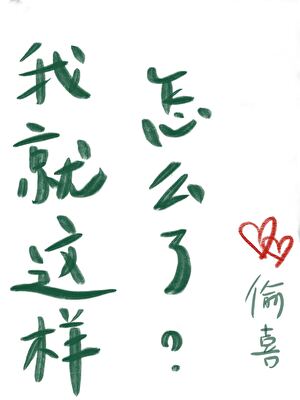 我就这样
怎么了?
偷喜